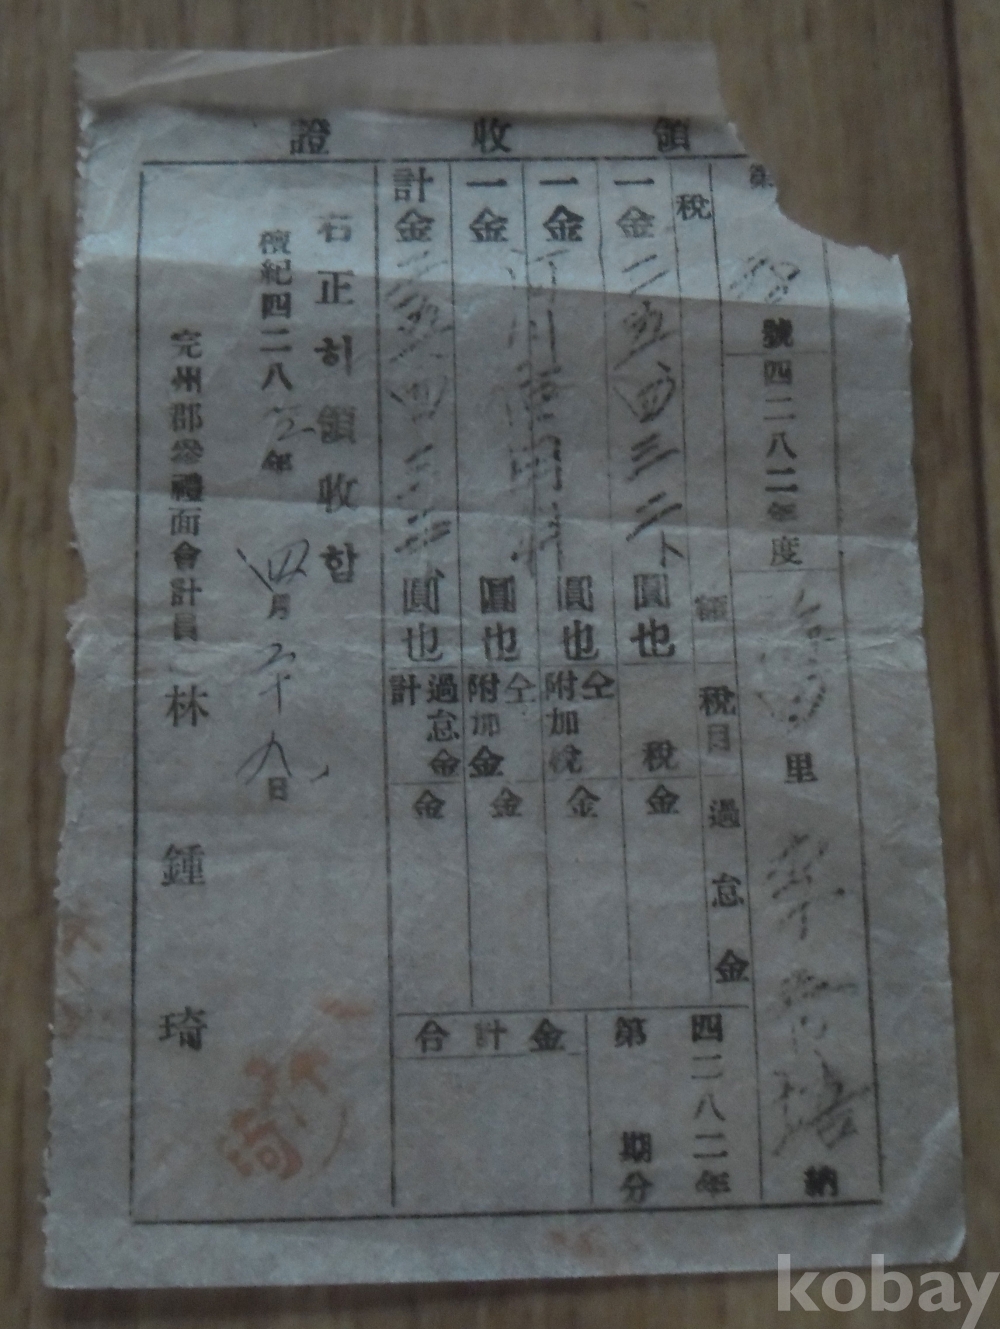 領收證
第
號
四二八二年度
里
納
稅
額
稅目
過怠金
四二八二年
第
期分
一金二五四三二圓也
稅
金
一金
圓也
仝附加稅
金
一金
圓也
仝附加金
金
計金二五四三二圓也
過怠金計
金
合計金
右正히領收함
檀紀四二八三年四月二十九日
完州郡參禮面會計員 林鍾琦
kobay